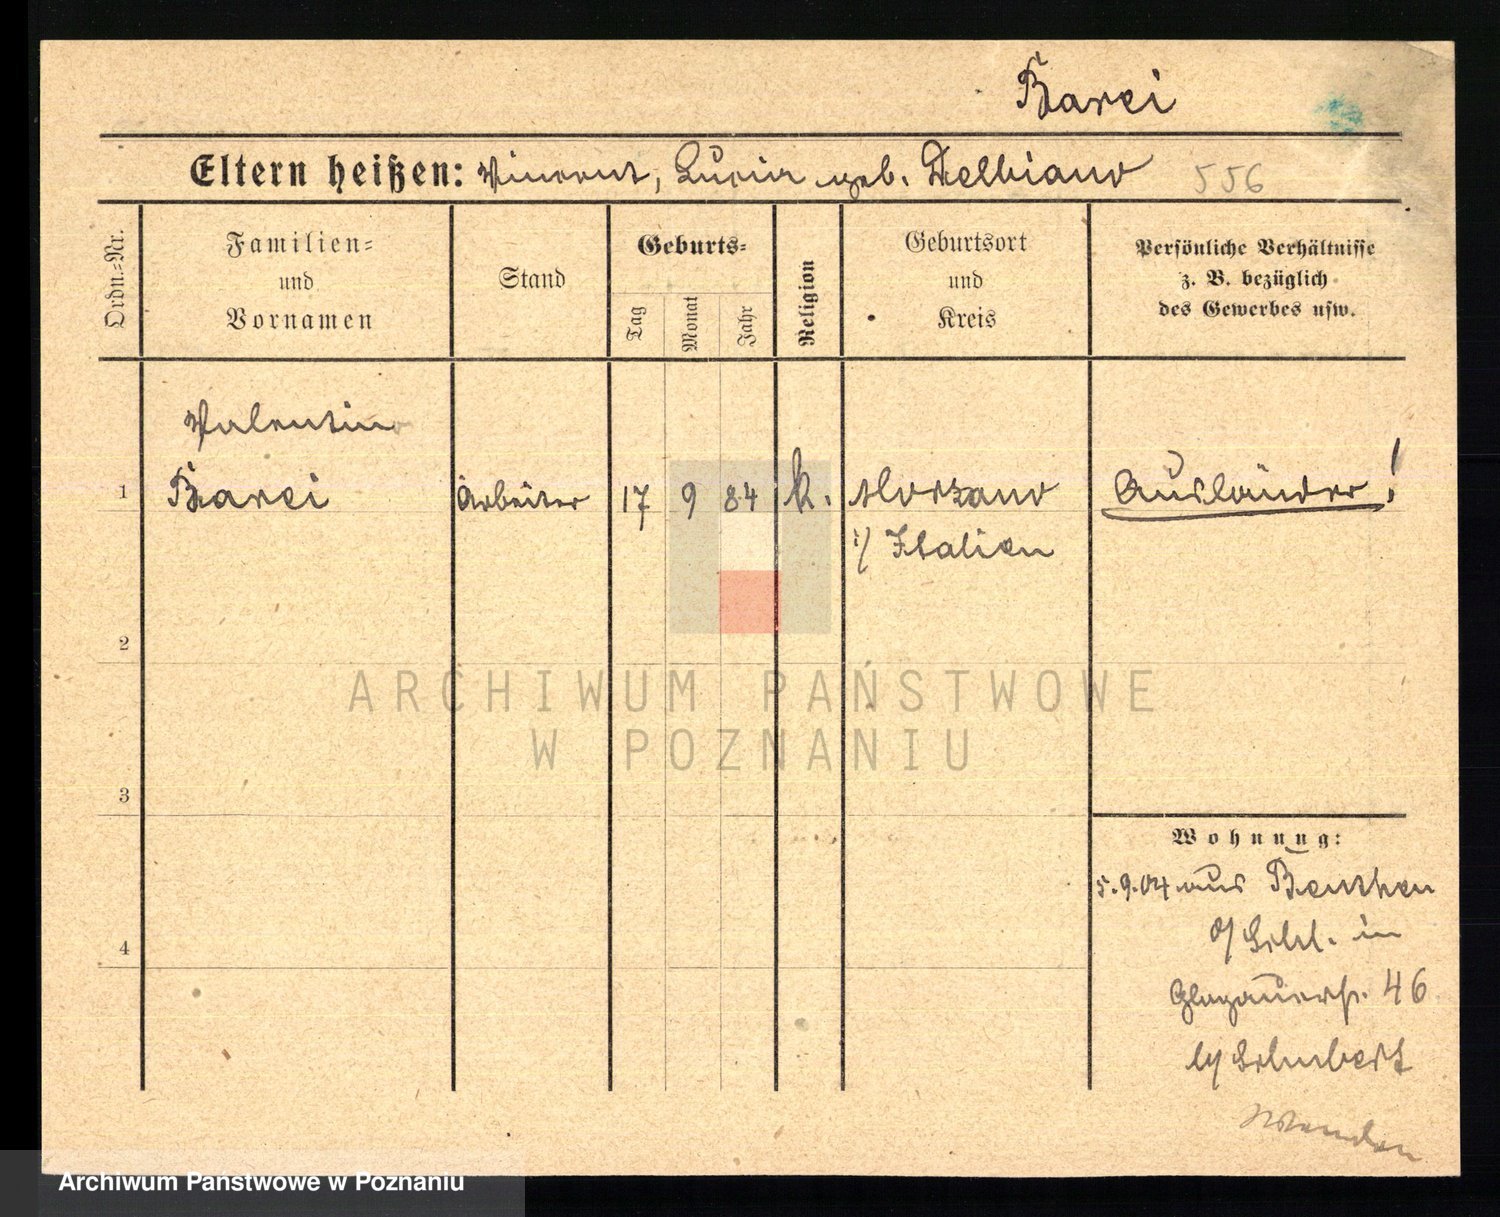 Barei
Eltern heißen: Vincent, Lucia geb. Delbiano 556
Ordn.=Nr.
Familien=
und
Vornamen
Stand
Geburts=
Tag
Monat
Jahr
Religion
Geburtsort
und
Kreis
Persönliche Verhältnisse
z. B. bezüglich
des Gewerbes usw.
Valentino
1 Barei Arbeiter 17 9 84 k. Morzano Ausländer!
i/ Italien
2
ARCHIWUM PAŃSTWOWE
W POZNANIU
3
Wohnung:
5.9.04 aus Beuthen
4
o/ Schl. in
Glogauerstr. 46
b/ Schubert
Archiwum Państwowe w Poznaniu